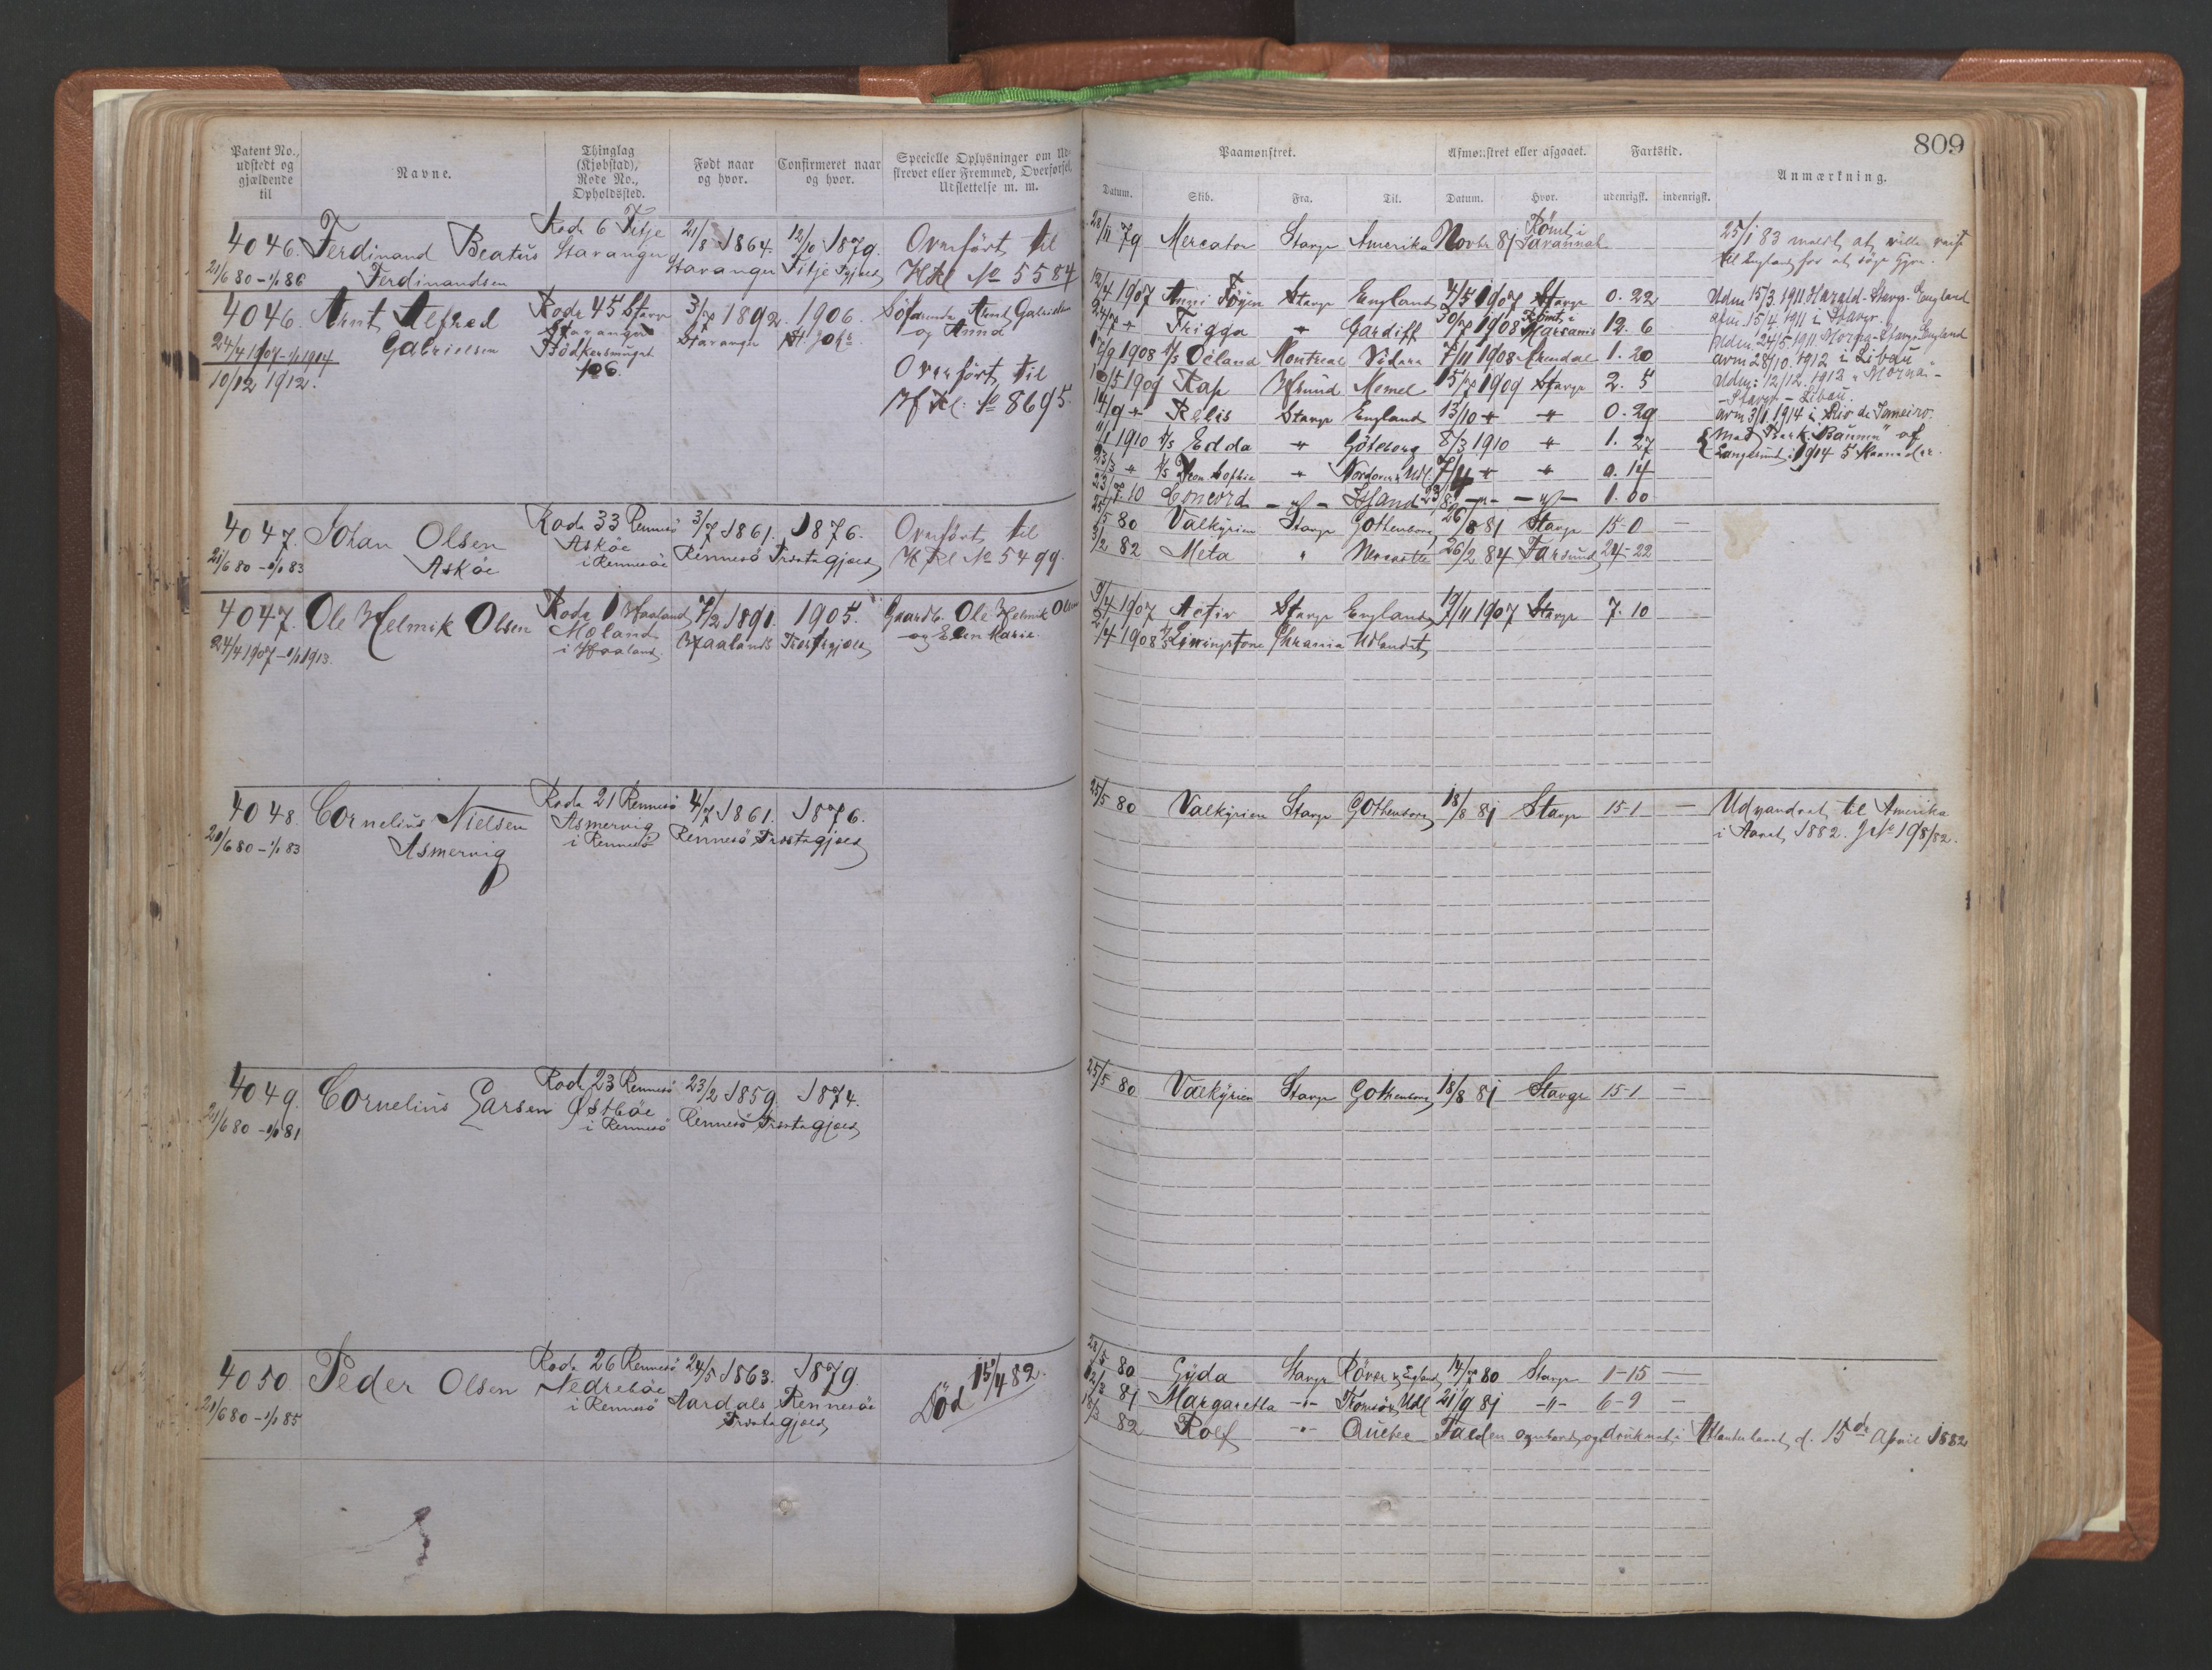 809
Patent No., udstedt og gjældende til
Navne.
Thinglag (Kjøbstad), Rode No., Opholdssted.
Født naar og hvor.
Confirmeret naar og hvor.
Specielle Oplysninger om Ud-
skrevet eller Fremmed, Overførsel,
Udslettelse m. m.
Paamønstret.
Afmønstret eller afgaaet.
Fartstid.
Anmærkning.
Datum. Skib. Fra. Til. Datum. Hvor. udenrigsk. indenrigsk.
4046. Ferdinand Beatus Rode 6 Fitje 21/8 1864. 12/10 1879. Overført til
21/6 80 - 1/1 86 Ferdinandsen Stavanger Stavanger Fitje HRl No 5584
28/11 79 Mercator Stavgr Amerika Novbr 81 Rømt i Savannah
25/1 83 meldt at ville reise
til England for at søge Hyre.
4046. Arnt Alfred Rode 45 Stavgr 3/7 1892. 1906. Søfarende Arnt Gabrielsen
24/4 1907 - 1/1 1914 Gabrielsen Stavanger Stavanger St. Joh. og Anna
10/12 1912. 106. Overført til
HfRl. No 8695.
12/4 1907 Anni Føyen Stavgr England 4/5 1907 Stavgr 0. 22
24/7 " Frigga " Cardiff 30/7 1908 Rømt i 12. 6
1908 D/S Oeland Montreal 7/11 1908 Arendal 1. 20
10/5 1909 Kap Memel 15/7 1909 Stavgr 2. 5
14/9 " Relis Stavgr England 13/10 " " 0. 29
11/1 1910 D/S Edda " Göteborg 8/3 1910 " 1. 27
23/3 " D/S Sophie " 7/4 " " 0. 14
23/7 10 Concord - " - Island 23/8 - " - - " - 1. 00
Udm 15/3. 1911 Harald - Stavgr - England
afm. 15/4 1911 i Stavgr.
Udm. 24/5 1911. Morna - Stavgr England
avm 28/10. 1912 i Libau
Udm: 12/12. 1912 "Morna" -
- Stavgr - Libau.
avm 3/1 1914 i Rio de Janeiro.
Med Bark af
Langesund i 1914 5 Maaneder.
4047. Johan Olsen Rode 33 Rennesø 3/7 1861. 1876. Overført til
21/6 80 - 1/1 83 Askøe Askøe i Rennesøe Rennesø Trosta gjæld HRl No 5499.
25/5 80 Valkyrien Stavgr Gothenborg 26/8 81 Stavgr 15-0 —
3/2 82 Meta " 26/2 84 Farsund 24-22
4047. Ole Helmik Olsen Rode 1 Haaland 7/2 1891. 1905. Gaardb. Ole Helmik Olsen
24/4 1907 - 1/1 1913. Møland i Haaland Haalands Trosta gjæld og Elen Marie.
9/4 1907 Activ Stavgr England 19/11 1907 Stavgr 7. 10
2/4 1908 D/S Livingstone Chrania Udlandet
4048. Cornelius Nielsen Rode 21 Rennesø 4/7 1861. 1876.
21/6 80 - 1/1 83 Asmervig Asmervig i Rennesø Rennesø Trosta gjæld
25/5 80 Valkyrien Stavgr Gothenborg 18/8 81 Stavgr 15-1 —
Udvandret til Amerika
i Aaret 1882. JNo 198/82.
4049. Cornelius Larsen Rode 23 Rennesø 23/2 1859. 1874.
21/6 80 - 1/1 81 Østbøe i Rennesø Rennesø Trosta gjæld
25/5 80 Valkyrien Stavgr Gothenborg 18/8 81 Stavgr 15-1 —
4050. Peder Olsen Rode 26 Rennesø 24/5 1863. 1879. Død 15/4 82.
21/6 80 - 1/1 85 Nedrebøe i Rennesø Aardals Rennesøe
Trosta gjæld
22/5 80 Gyda Stavgr England 14/7 80 Stavgr 1-15 —
12/2 81 Margaretha - " - Tromsø Udl 21/9 81 - " - 6-9 —
18/3 82 Rolf - " - Quebec Falden overbord og druknet i Atlanterhavet d. 15de April 1882